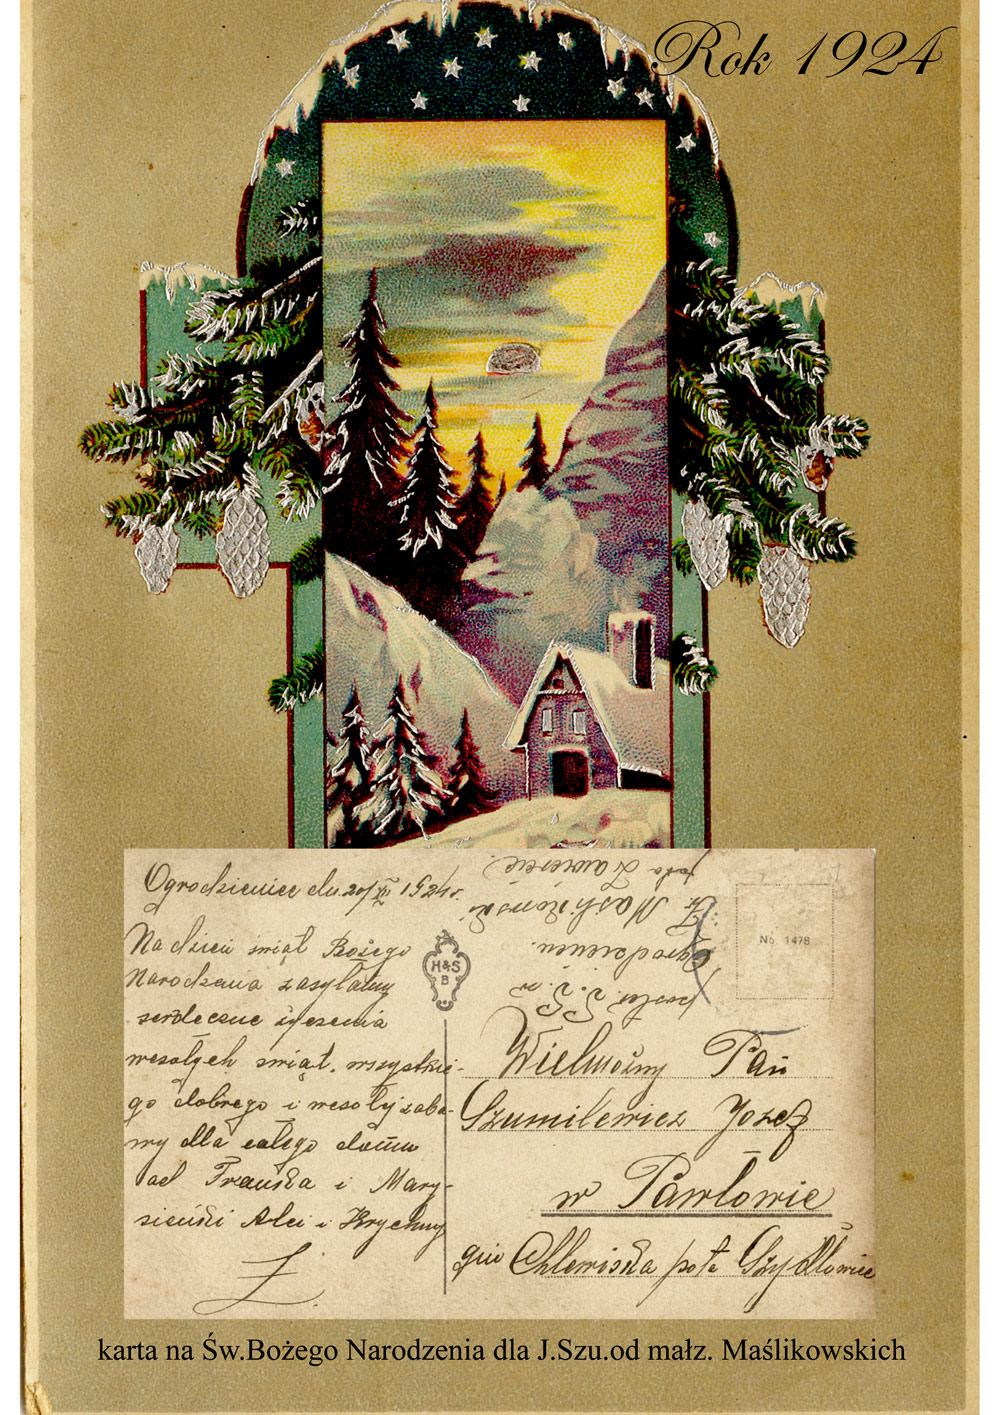 Rok 1924
Ogrodzieniec dn. 20/XII 1924r.
Na dzień świąt Bożego
Narodzenia zasyłamy
serdeczne życzenia
wesołych świąt, wszystkie-
go dobrego i wesołej zaba-
wy dla całego domu
od Franka i Mary-
sieńki Alci i Krychny
H&S
B
No. 1478
Fr Maślikowski
Ogrodzieniec
Wielmożny Pan
Szumilewicz Józef
w Pawłowie
gm Chlewiska pota Szydłowiec
karta na Św.Bożego Narodzenia dla J.Szu.od małz. Maślikowskich